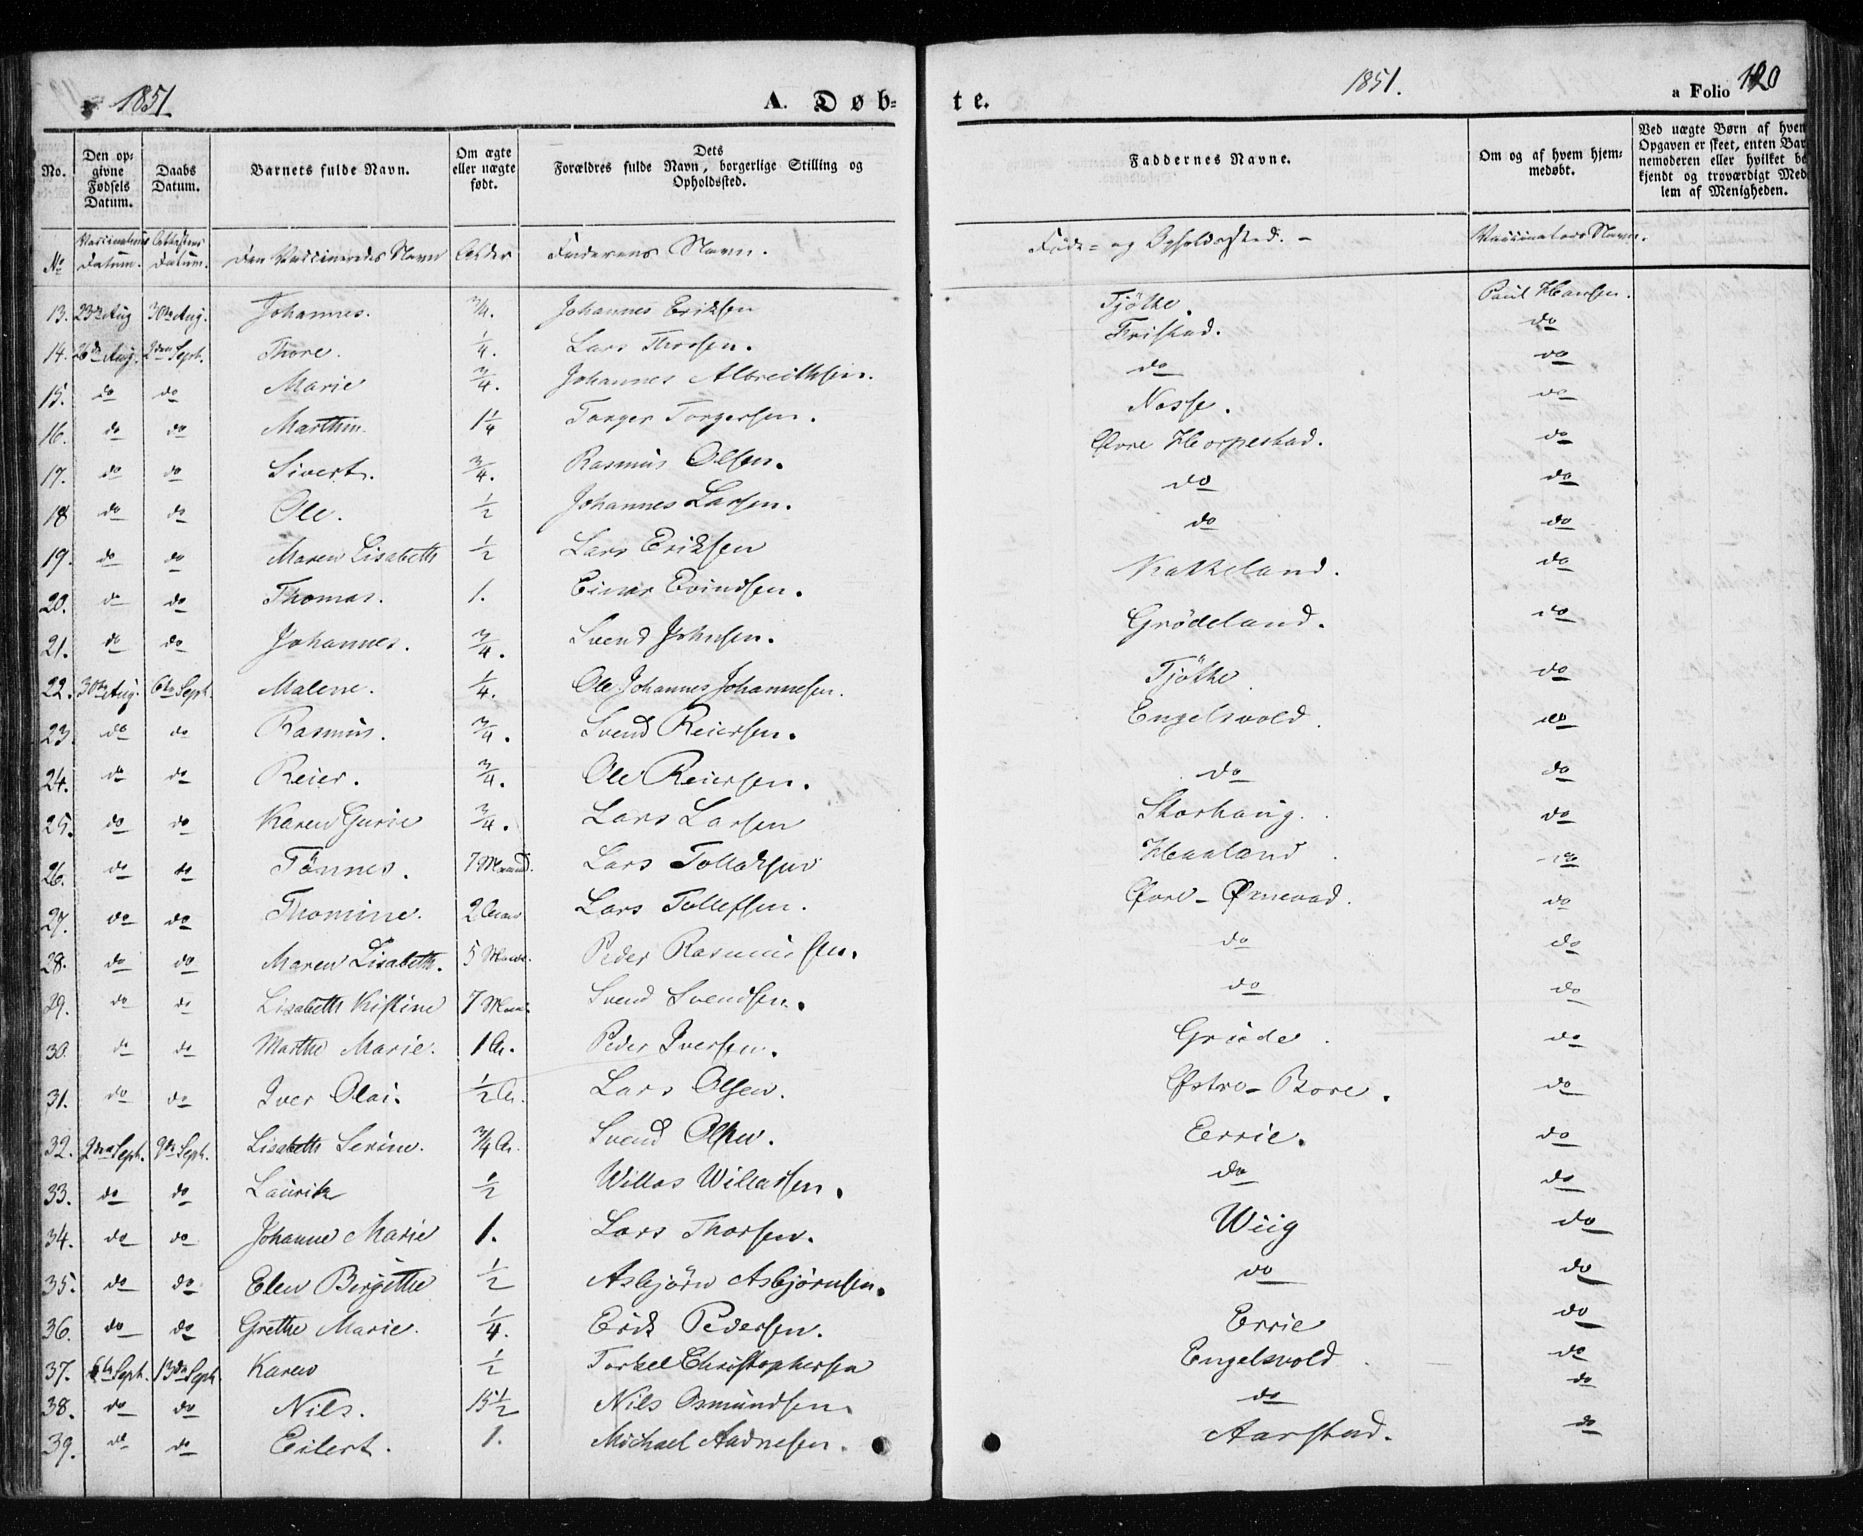 1851. A. Døb- te. 1851. a Folio 120
No. Den op-givne Fødsels Datum. Daabs Datum. Barnets fulde Navn. Om ægte eller uægte født. Dets Forældres fulde Navn, borgerlige Stilling og Opholdssted. Faddernes Navne. Om og af hvem hjem-medøbt. Ved uægte Børn af hvem Opgaven er skeet, enten Bar nemoderen eller hvilket be kjendt og troværdigt Med lem af Menigheden.
No Vaccinations Datum. Attestens Datum. Den Vaccineredes Navn Alder Faderens Navn. Føde- og Opholdssted. - Vaccinators Navn.
13. 23de Aug 30te Aug. Johannes. 3/4. Johannes Eriksen Tjøtte. Paul Hansen.
14. 26de Aug. 2den Sept. Thore. 1/4. Lars Thorsen. Fristad. do
15. do do Marie 3/4. Johannes Albreithsen. do do
16. do do Marthin. 1 1/4 Torger Torgersen. Nosse. do
17. do do Sivert. 3/4. Rasmus Olsen. Øvre Horpestad. do
18 do do Ole. 1/2 Johannes Larsen. do do
19. do do Maren Lisabeth 1/2 Lars Eriksen do do
20. do do Thomas. 1. Einar Evindsen. Katteland. do
21. do do Johannes. 3/4. Svend Johnsen. Grødeland. do
22. 30te Aug. 6te Sept. Malene. 1/4. Ole Johannes Johannesen. Tjøtte do
23. do do Rasmus. 3/4. Svend Reiersen. Engelsvold. do
24. do do Reier. 3/4. Ole Reiersen. do do
25. do do Karen Gurie 3/4. Lars Larsen Storhaug. do
26. do do Tønnes. 7 Maaned. Lars Tollaksen Haaland do
27. do do Thomine. 2 Aar Lars Tollefsen. Øvre-Ørnevad. do
28. do do Maren Lisabeth. 5 Maan. Peder Rasmussen. do do
29. do do Lisabeth Kistine 7 Maan. Svend Svendsen. do do
30. do do Marthe Marie. 1 A. Peder Iversen. Grude. do
31. do do Iver Olai. 1/2 A. Lars Olsen. Østre-Bore. do
32. 2den Sept. 9de Sept. Lisabeth Serine. 3/4 A. Svend Olsen. Errie. do
33. do do Laurik 1/2 Willas Willassen. do do
34. do do Johanne Marie 1. Lars Thorsen. Wiig do
35. do do Elen Birgithe 1/2 Asbjørn Asbjørnsen. do do
36. do do Grethe Marie. 1/4. Erik Pedersen. Errie do
37. 6te Sept. 13de Sept. Karen 1/2 Torkel Christophersen Engelsvold do
38. do do Nils. 15 1/2 Nils Osmundsen do do
39. do do Eilert. 1. Michael Aadnesen. Aarstad. do